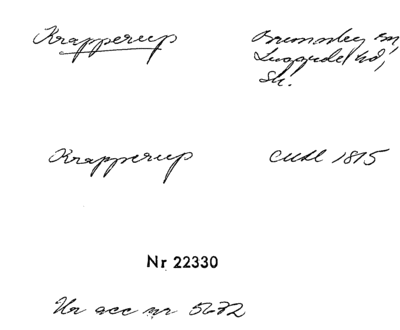 Krapperup
Brunnby sn,
Luggude hd,
Sk.
Krapperup
CUAL 1875
Nr 22330
Ur acc nr 5672